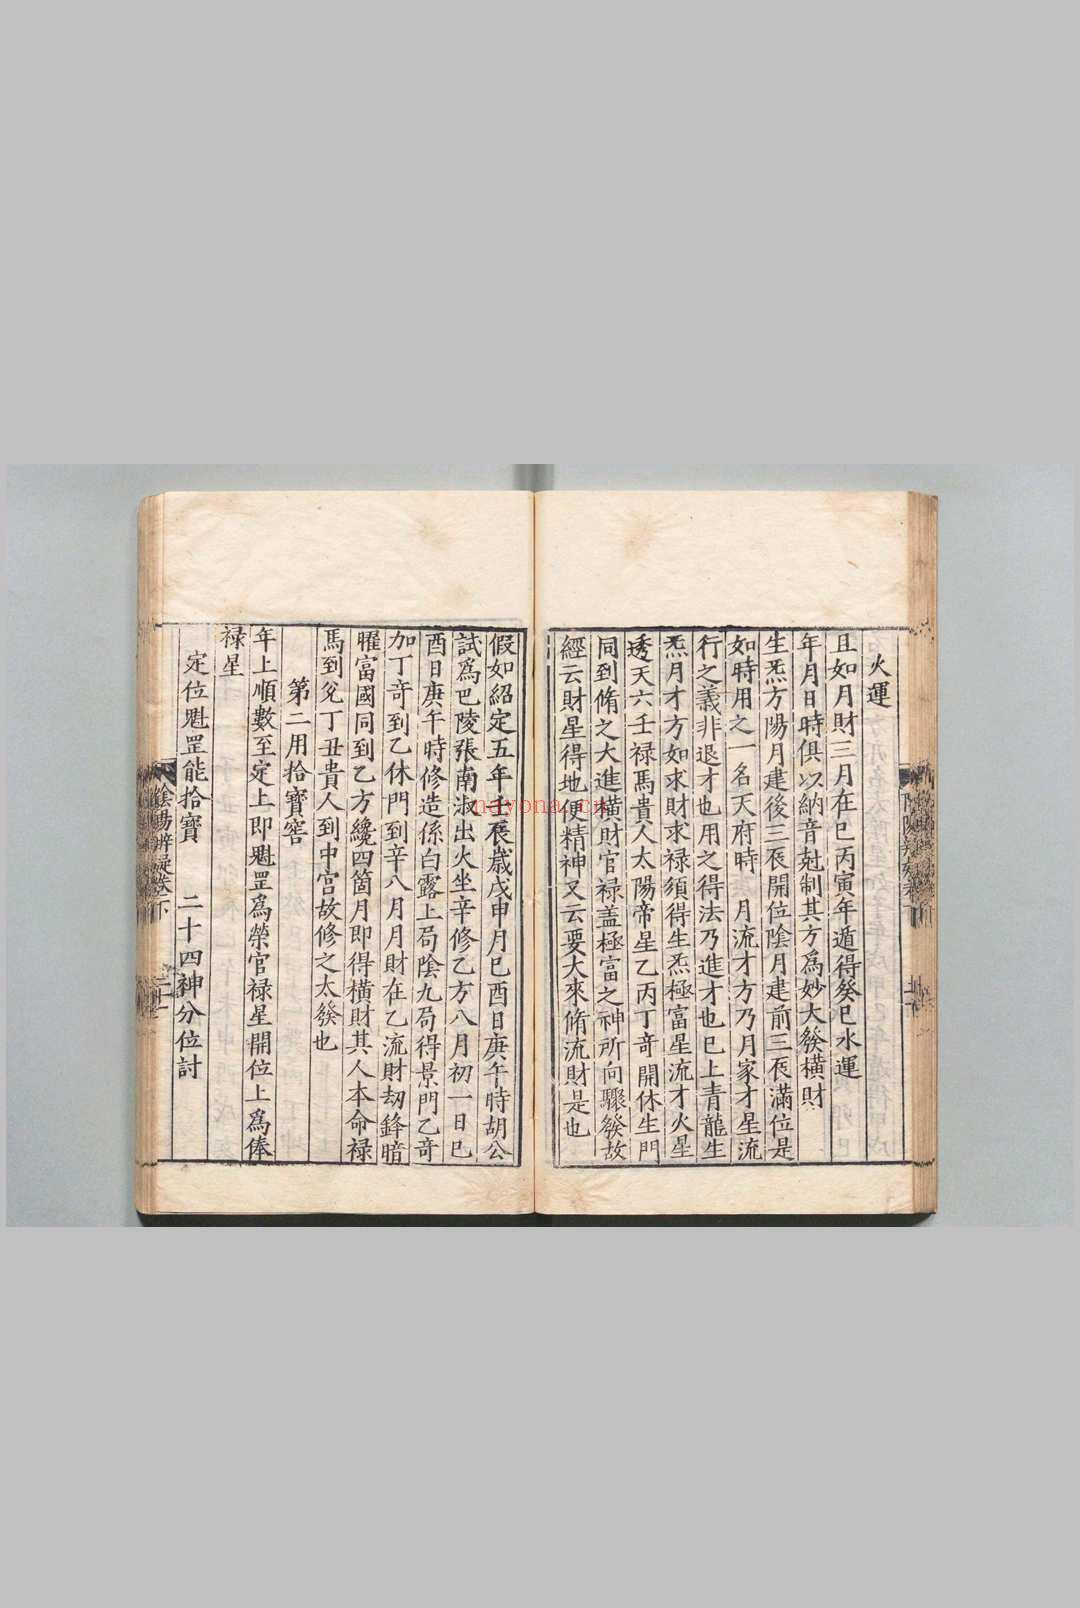 火運
且如月財三月在巳丙寅年遁得癸巳水運
年月日時俱以納音尅制其方爲妙大發橫財
生炁方陽月建後三辰開位陰月建前三辰滿位是
如時用之一名天府時 月流才方乃月家才星流
行之義非退才也用之得法乃進才也巳上青龍生
炁月才方如求財求禄須得生炁極富星流才火星
透天六壬禄馬貴人太陽帝星乙丙丁奇開休生門
同到脩之大進橫財官禄盖極富之神所向驟發故
經云財星得地便精神又云要大來脩流財是也
假如紹定五年壬辰歲戊申月巳酉日庚午時胡公
試爲巴陵張南淑出火坐辛修乙方八月初一日巳
酉日庚午時修造係白露上局陰九局得景門乙奇
加丁奇到乙休門到辛八月月財在乙流財刼鋒暗
曜富國同到乙方纔四箇月即得橫財其人本命禄
馬到兊丁丑貴人到中宮故修之太發也
第二用拾寶窖
年上順數至定上即魁罡爲榮官禄星開位上爲俸
禄星
定位魁罡能拾寶 二十四神分位討
陰陽辨疑卷下
nayona.cn